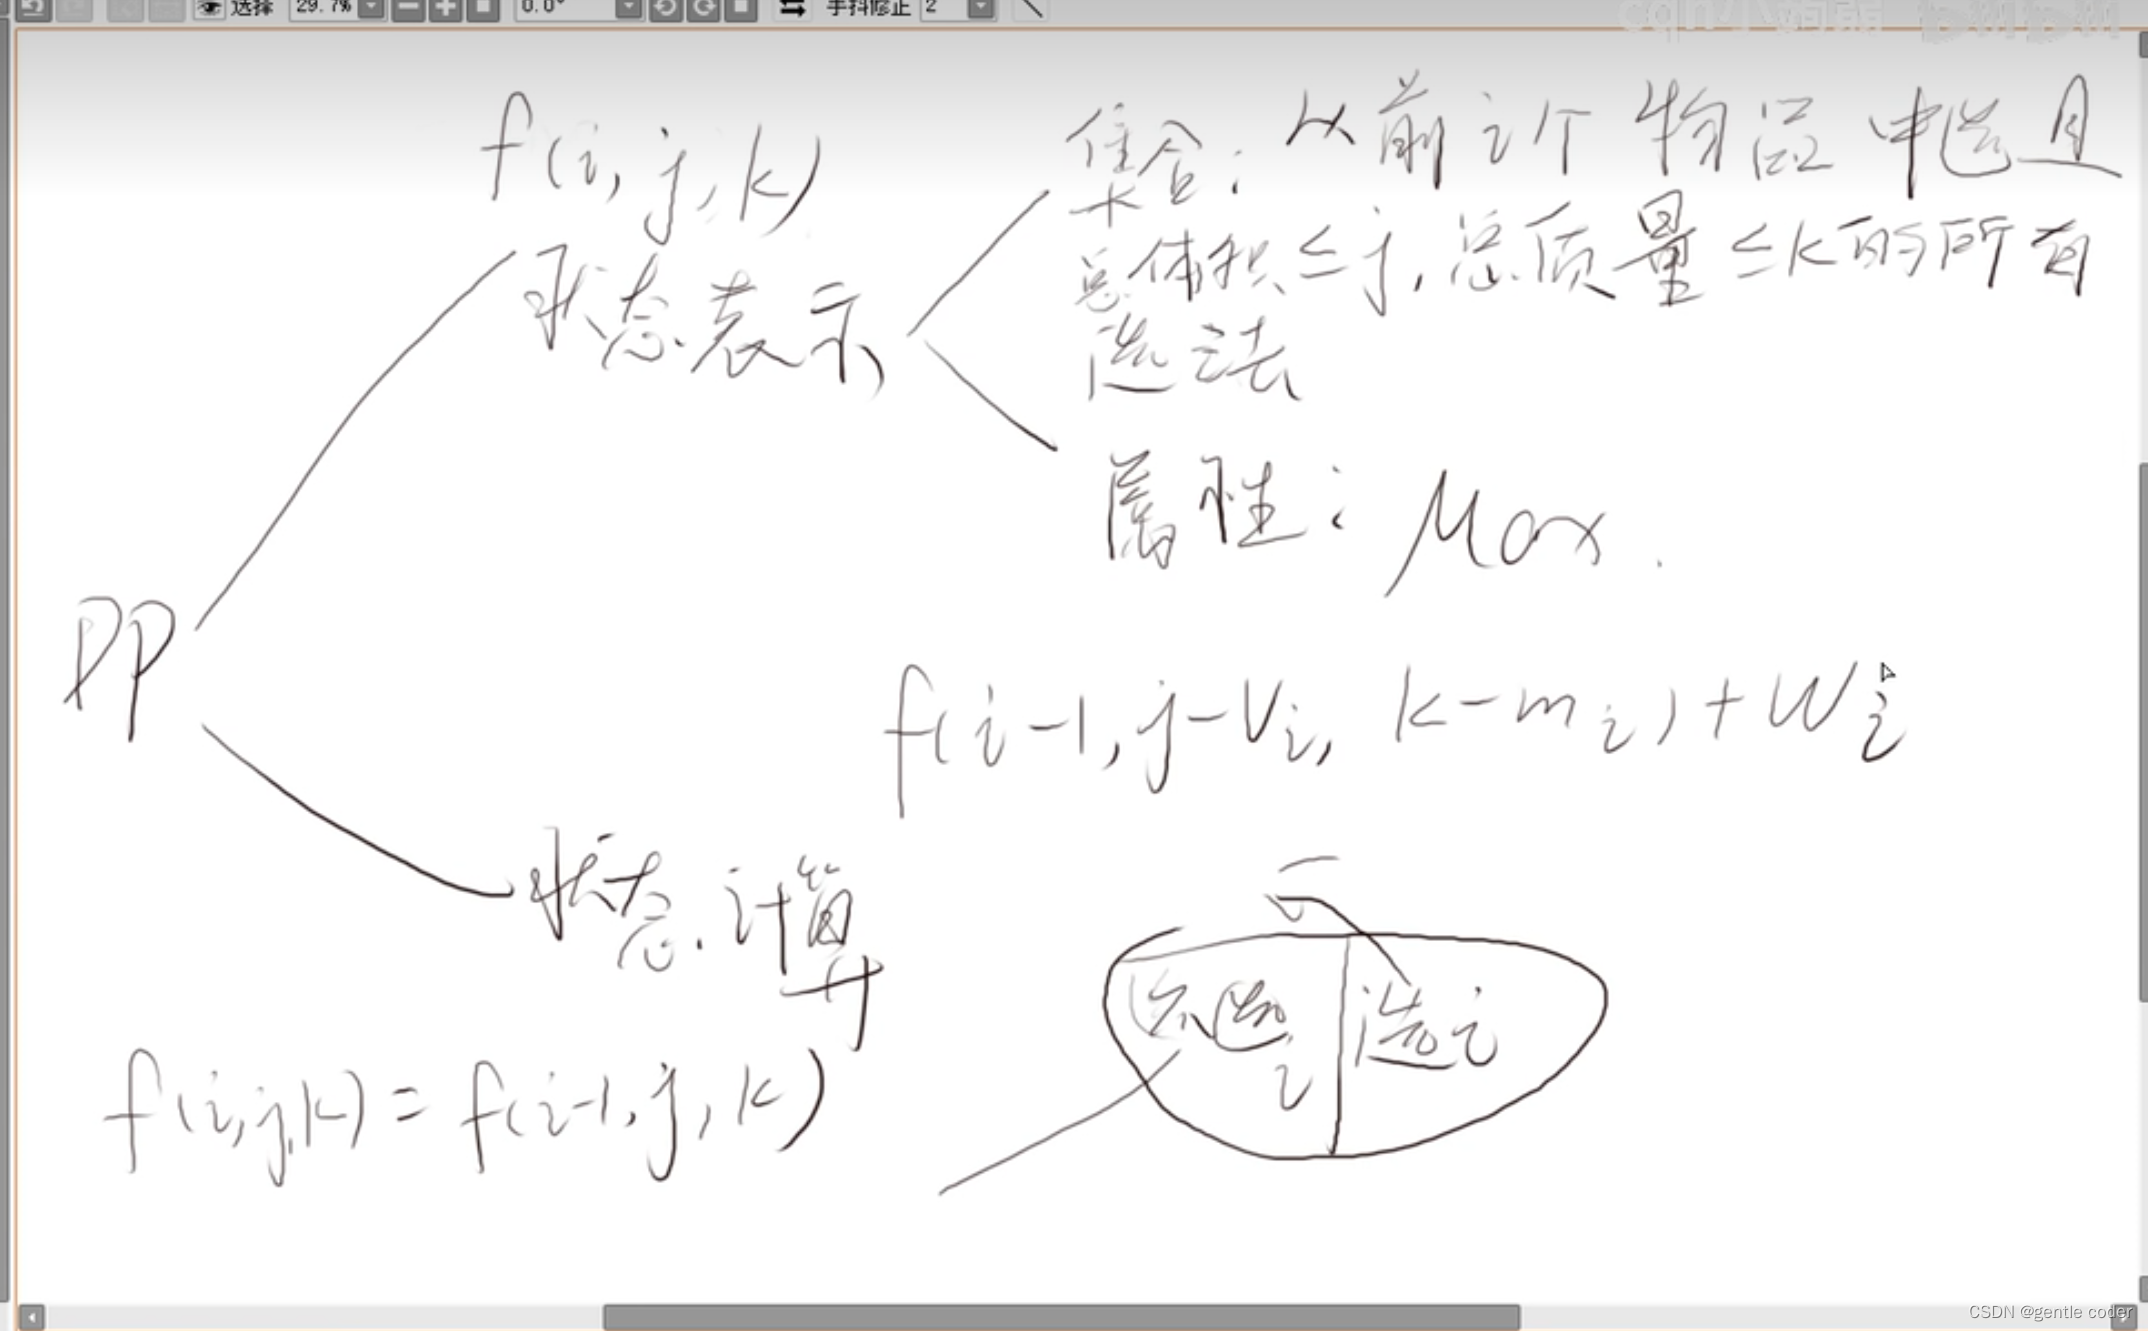 选择 29.7% 0.0° 手抖修正 2
f(i, j, k)
集合: 从前i个物品中选且
总体积≤j, 总质量≤k的所有
选法
状态表示
属性: Max.
DP
f(i-1, j-Vi, k-mi)+Wi
状态计算
不选i 选i
f(i,j,k)=f(i-1,j,k)
CSDN @gentle coder